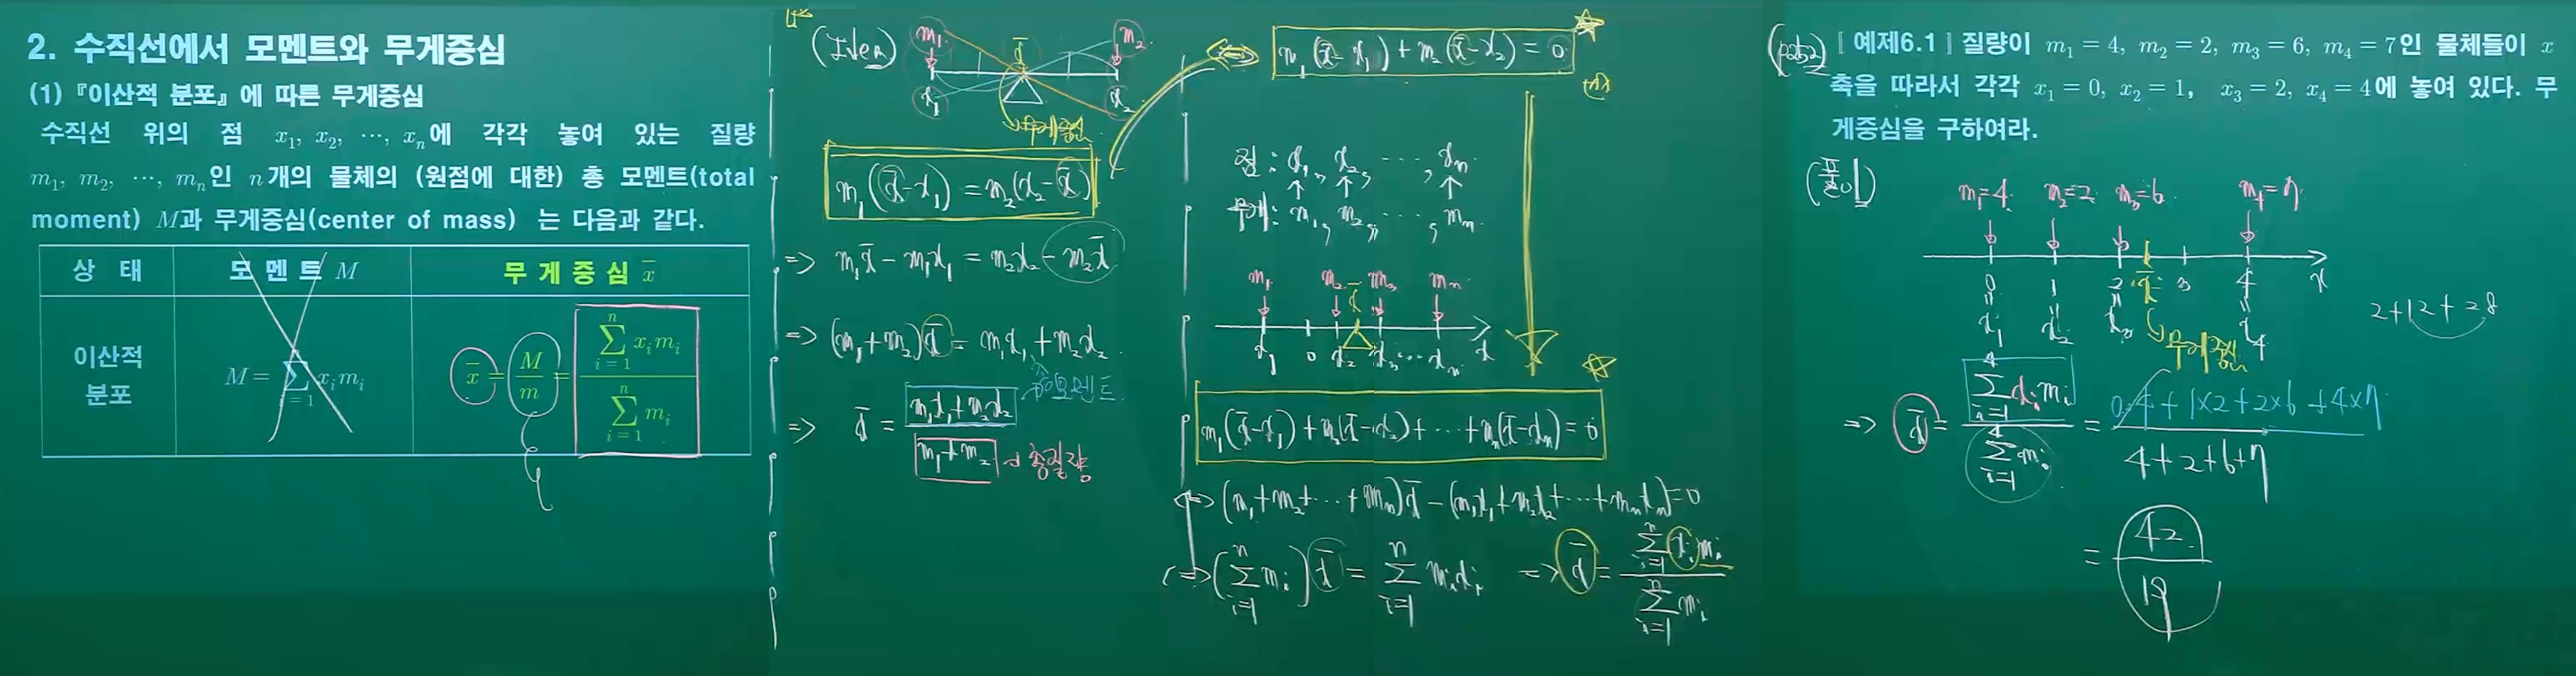 2. 수직선에서 모멘트와 무게중심
(1)『이산적 분포』에 따른 무게중심
수직선 위의 점 x₁, x₂, ⋯, xₙ에 각각 놓여 있는 질량
m₁, m₂, ⋯, mₙ인 n개의 물체의 (원점에 대한) 총 모멘트(total
moment) M과 무게중심(center of mass) 는 다음과 같다.
상 태 모 멘 트 M 무 게 중 심 x̄
이산적 분포 M = ∑_{i=1}^{n} xᵢmᵢ x̄ = M/m = ∑_{i=1}^{n} xᵢmᵢ / ∑_{i=1}^{n} mᵢ
(Idea) m₁ x̄ m₂
x₁ x₂
무게중심
m₁(x̄-x₁) = m₂(x₂-x̄)
⇒ m₁x̄ - m₁x₁ = m₂x₂ - m₂x̄
⇒ (m₁+m₂)x̄ = m₁x₁ + m₂x₂
⇒ x̄ = (m₁x₁+m₂x₂) / (m₁+m₂)
총모멘트
총질량
⇔ m₁(x̄-x₁) + m₂(x̄-x₂) = 0
점: x₁, x₂, ⋯, xₙ
무게: m₁, m₂, ⋯, mₙ
m₁ m₂ x̄ m₃ mₙ
x₁ 0 x₂ x₃ ⋯ xₙ x
m₁(x̄-x₁) + m₂(x̄-x₂) + ⋯ + mₙ(x̄-xₙ) = 0
⇔ (m₁+m₂+⋯+mₙ)x̄ - (m₁x₁+m₂x₂+⋯+mₙxₙ) = 0
⇔ (∑_{i=1}^{n} mᵢ) x̄ = ∑_{i=1}^{n} mᵢxᵢ ⇒ x̄ = ∑_{i=1}^{n} xᵢmᵢ / ∑_{i=1}^{n} mᵢ
[예제6.1] 질량이 m₁ = 4, m₂ = 2, m₃ = 6, m₄ = 7인 물체들이 x
축을 따라서 각각 x₁ = 0, x₂ = 1, x₃ = 2, x₄ = 4에 놓여 있다. 무
게중심을 구하여라.
(풀이)
m₁=4 m₂=2 m₃=6 m₄=7
0 1 2 x̄ 3 4 x
x₁ x₂ x₃ x₄
무게중심
2+12+28
⇒ x̄ = ∑_{i=1}^{4} xᵢmᵢ / ∑_{i=1}^{4} mᵢ = (0·4 + 1×2 + 2×6 + 4×7) / (4+2+6+7)
= 42/19